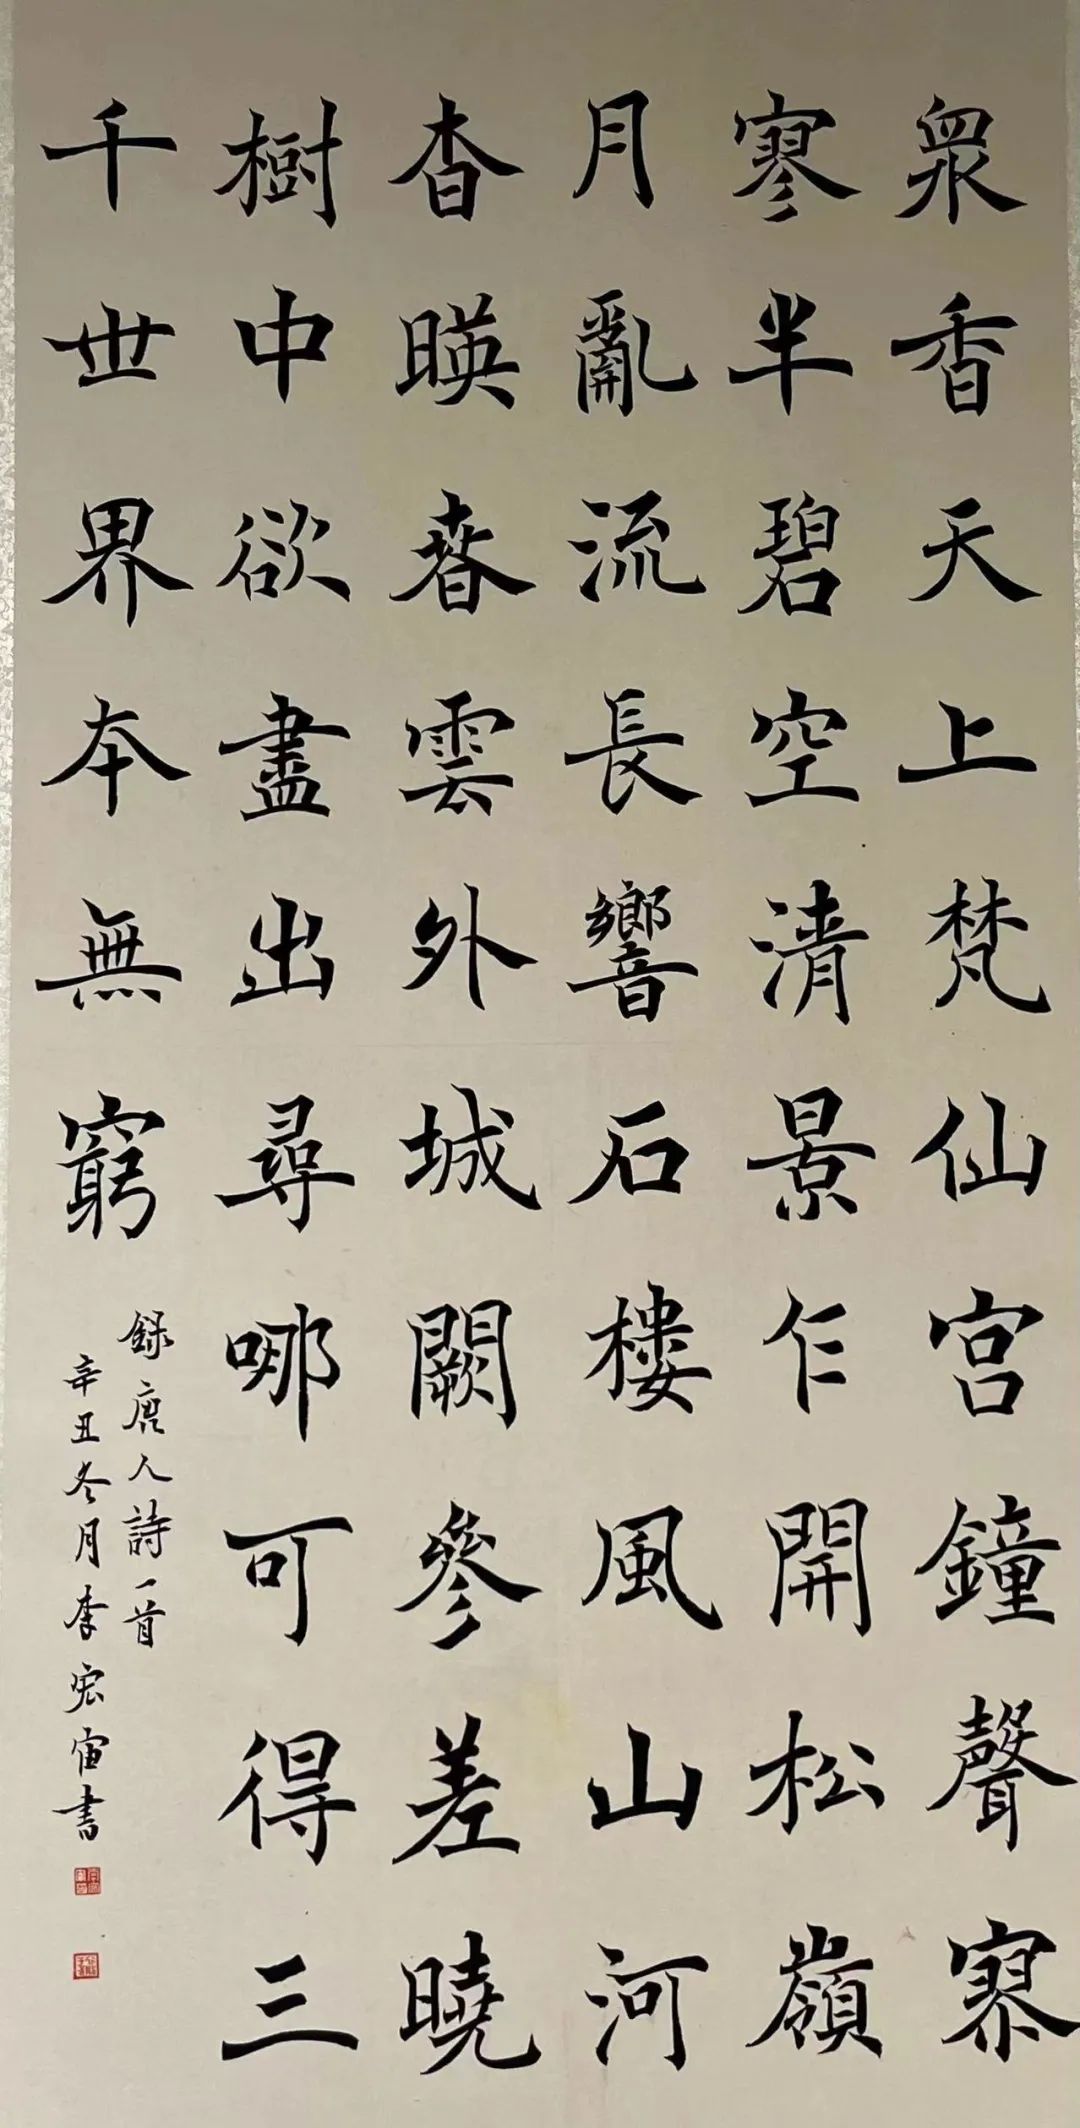 眾香天上梵仙宮鐘聲寥
寥半碧空清景乍開松嶺
月亂流長響石樓風山河
杳暎春雲外城闕參差曉
樹中欲盡出尋哪可得三
千世界本無窮
錄唐人詩一首
辛丑冬月李宏宙書